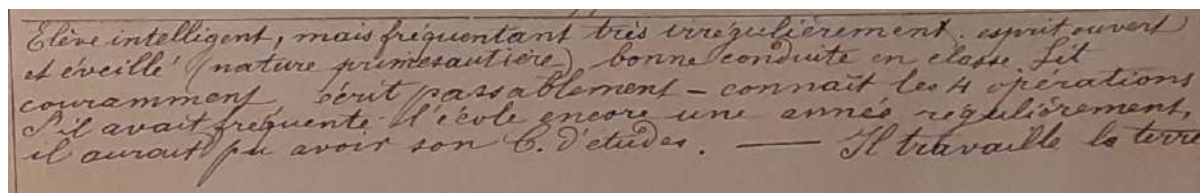 Elève intelligent, mais fréquentant très irrégulièrement. esprit ouvert
et éveillé (nature primesautière) bonne conduite en classe. Lit
couramment, écrit passablement - connaît les 4 opérations
S'il avait fréquenté l'école encore une année régulièrement,
il aurait pu avoir son C. d'études. — Il travaille la terre